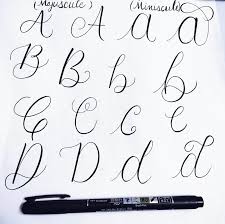 (Majuscule) (Miniscule)
A A a a
B B b b
C C c c
D D d d